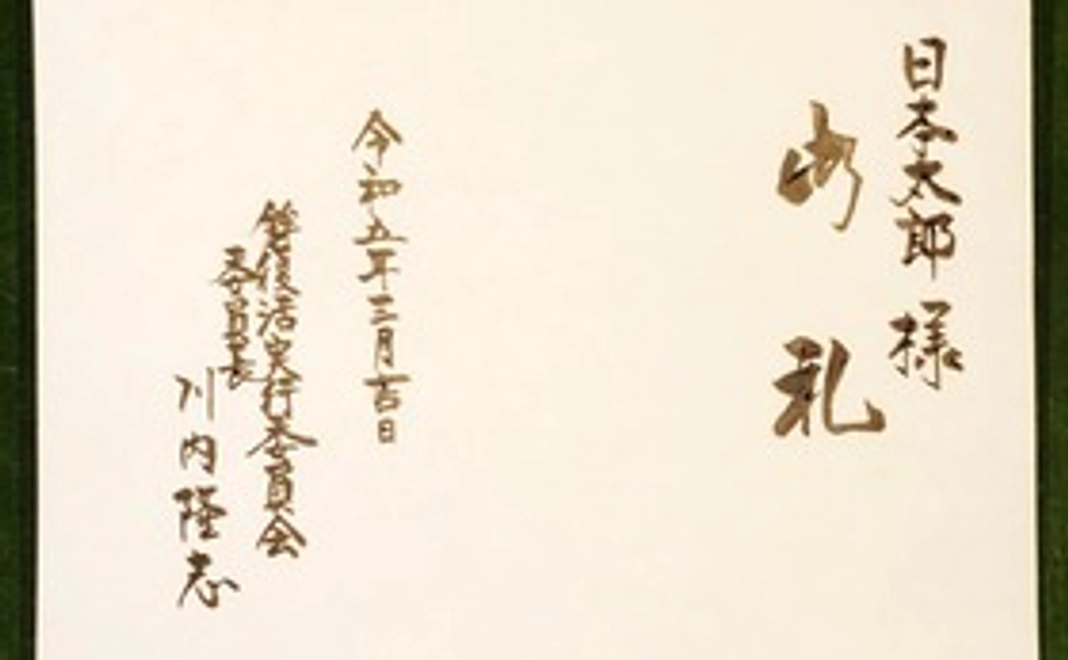 日本太郎 様
御 礼
令和五年三月吉日
復活実行委員会
委員長
川内隆志